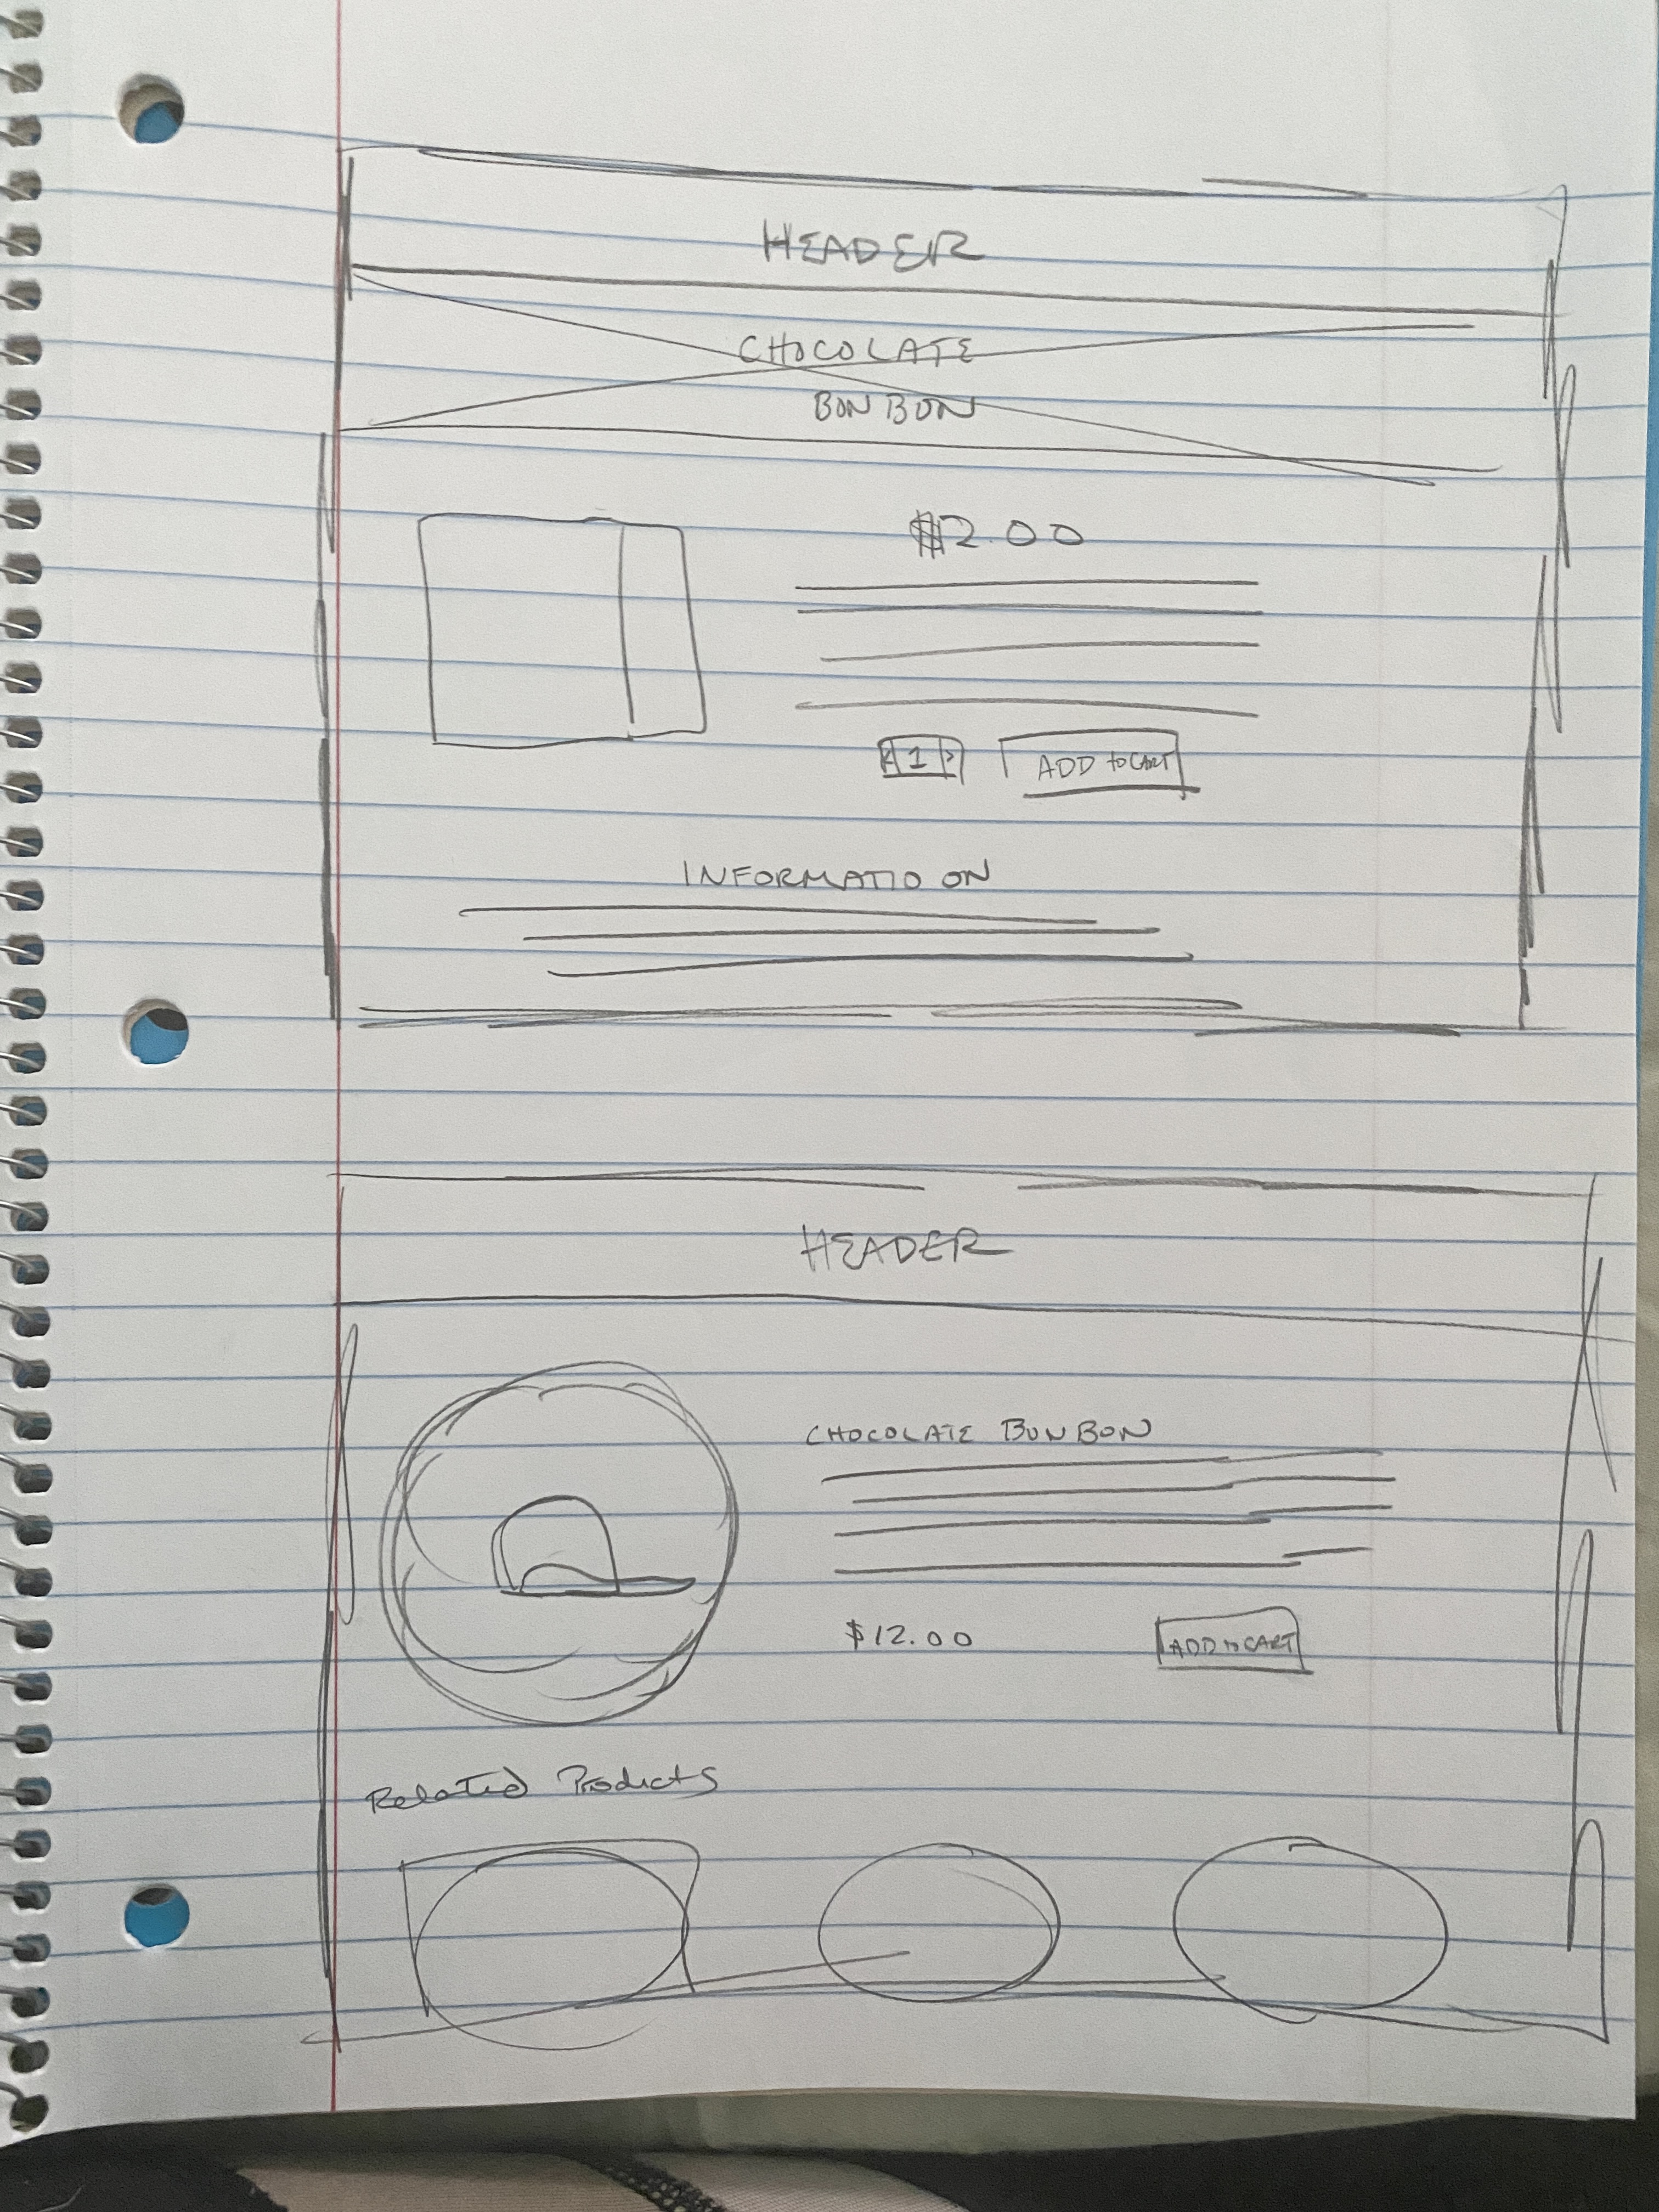 HEADER
CHOCOLATE
BON BON
$12.00
< 1 >
ADD to CART
INFORMATIO ON
HEADER
CHOCOLATE BON BON
$12.00
ADD to CART
Related Products